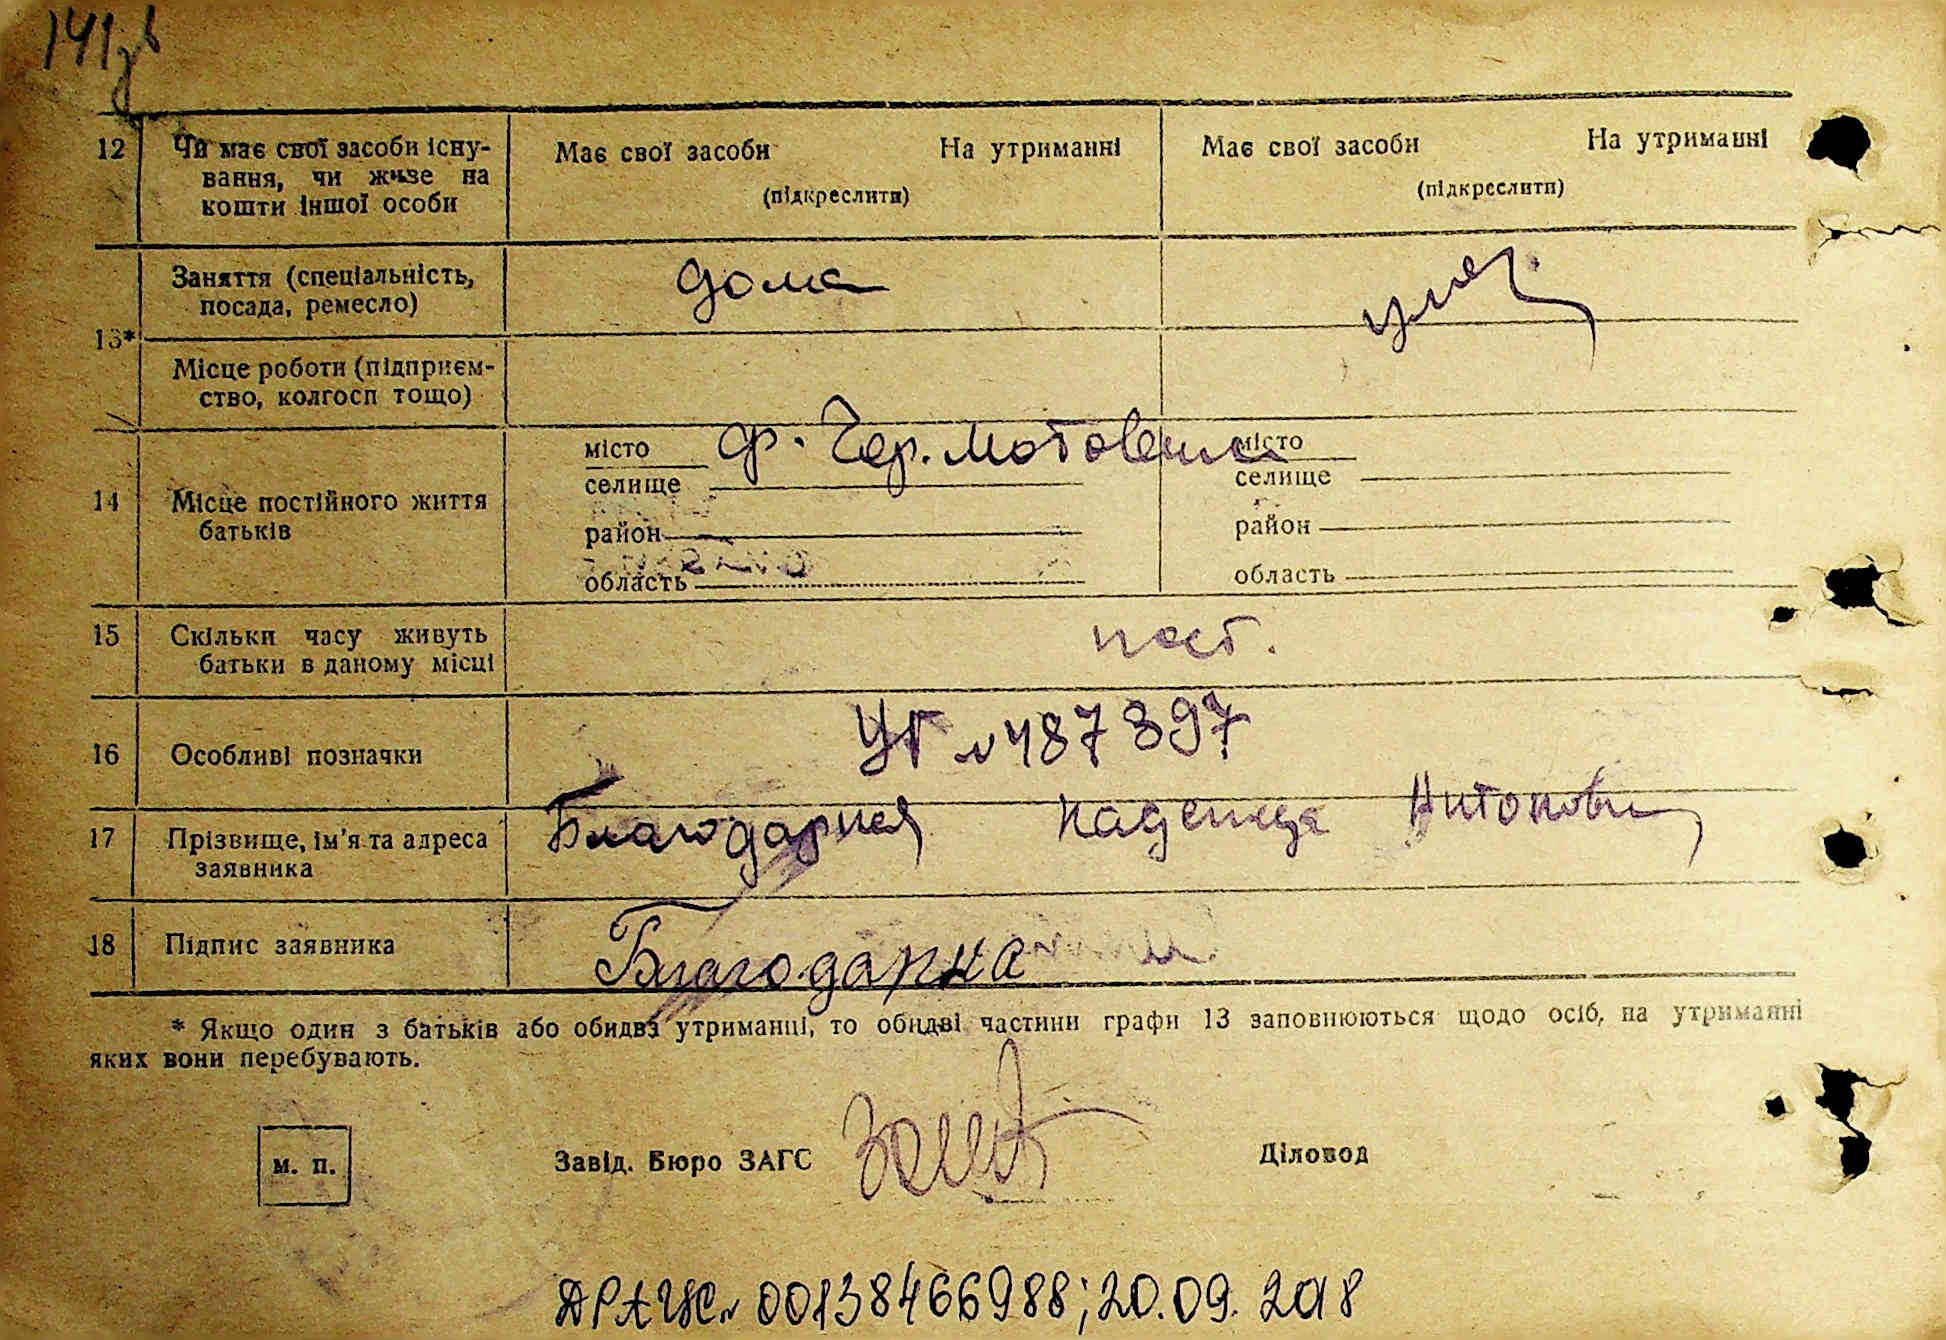 141зв
12 Чи має свої засоби існу- Має свої засоби На утриманні Має свої засоби На утриманні
вання, чи живе на (підкреслити) (підкреслити)
кошти іншої особи
Заняття (спеціальність, дома
посада, ремесло)
13*
Місце роботи (підприєм-
ство, колгосп тощо)
місто ф. Чер. Мотовил місто
селище селище
14 Місце постійного життя
батьків район район
область область
15 Скільки часу живуть пост.
батьки в даному місці
16 Особливі позначки УГ № 487397
17 Прізвище, ім'я та адреса Благодарная Надежда Антоновн
заявника
18 Підпис заявника Благодарна
* Якщо один з батьків або обидва утриманці, то обидві частини графи 13 заповнюються щодо осіб, на утриманні
яких вони перебувають.
м. п. Завід. Бюро ЗАГС Діловод
ДРАЦС № 00138466988; 20.09.2018